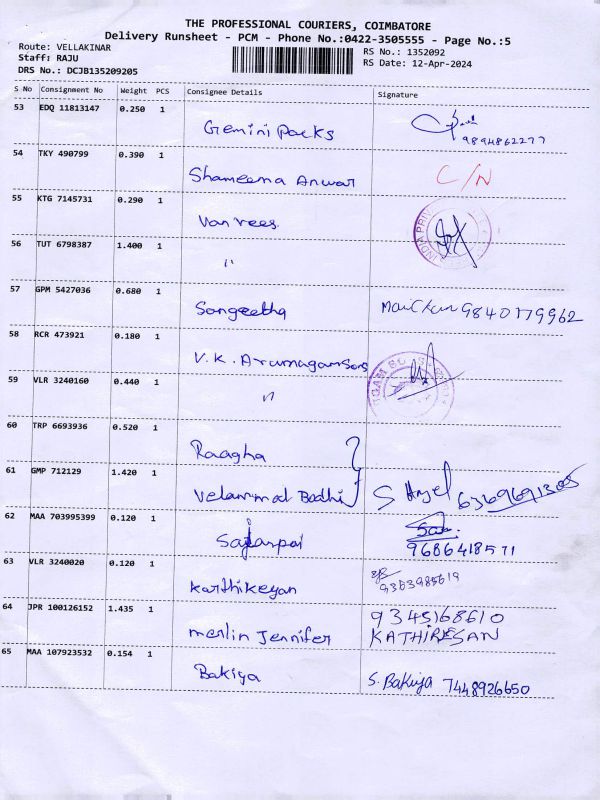 THE PROFESSIONAL COURIERS, COIMBATORE
Delivery Runsheet - PCM - Phone No.:0422-3505555 - Page No.:5
Route: VELLAKINAR RS No.: 1352092
Staff: RAJU RS Date: 12-Apr-2024
DRS No.: DCJB135209205
S No Consignment No Weight PCS Consignee Details Signature
53 EDQ 11813147 0.250 1
Gemini Packs 9894862277
54 TKY 490799 0.390 1
Shameema Anwar C/N
55 KTG 7145731 0.290 1
Van rees
56 TUT 6798387 1.400 1
"
57 GPM 5427036 0.680 1
Sangeetha 9840179962
58 RCR 473921 0.180 1
V.K. Arumagamsons
59 VLR 3240160 0.440 1
"
60 TRP 6693936 0.520 1
Raagha
61 GMP 712129 1.420 1
Velammal Bodhi 6369691305
62 MAA 703995399 0.120 1
9686418571
63 VLR 3240020 0.120 1
Karthikeyan 9363985619
64 JPR 100126152 1.435 1
merlin Jennifer 9345168610
KATHIRESAN
65 MAA 107923532 0.154 1
Bakiya S. Bakiya 7448926650